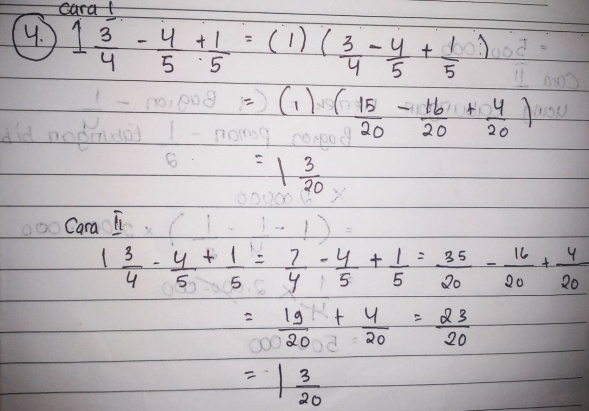 Cara I
4. 1 3/4 - 4/5 + 1/5 = (1) (3/4 - 4/5 + 1/5)
= (1) (15/20 - 16/20 + 4/20)
= 1 3/20
Cara II
1 3/4 - 4/5 + 1/5 = 7/4 - 4/5 + 1/5 = 35/20 - 16/20 + 4/20
= 19/20 + 4/20 = 23/20
= 1 3/20